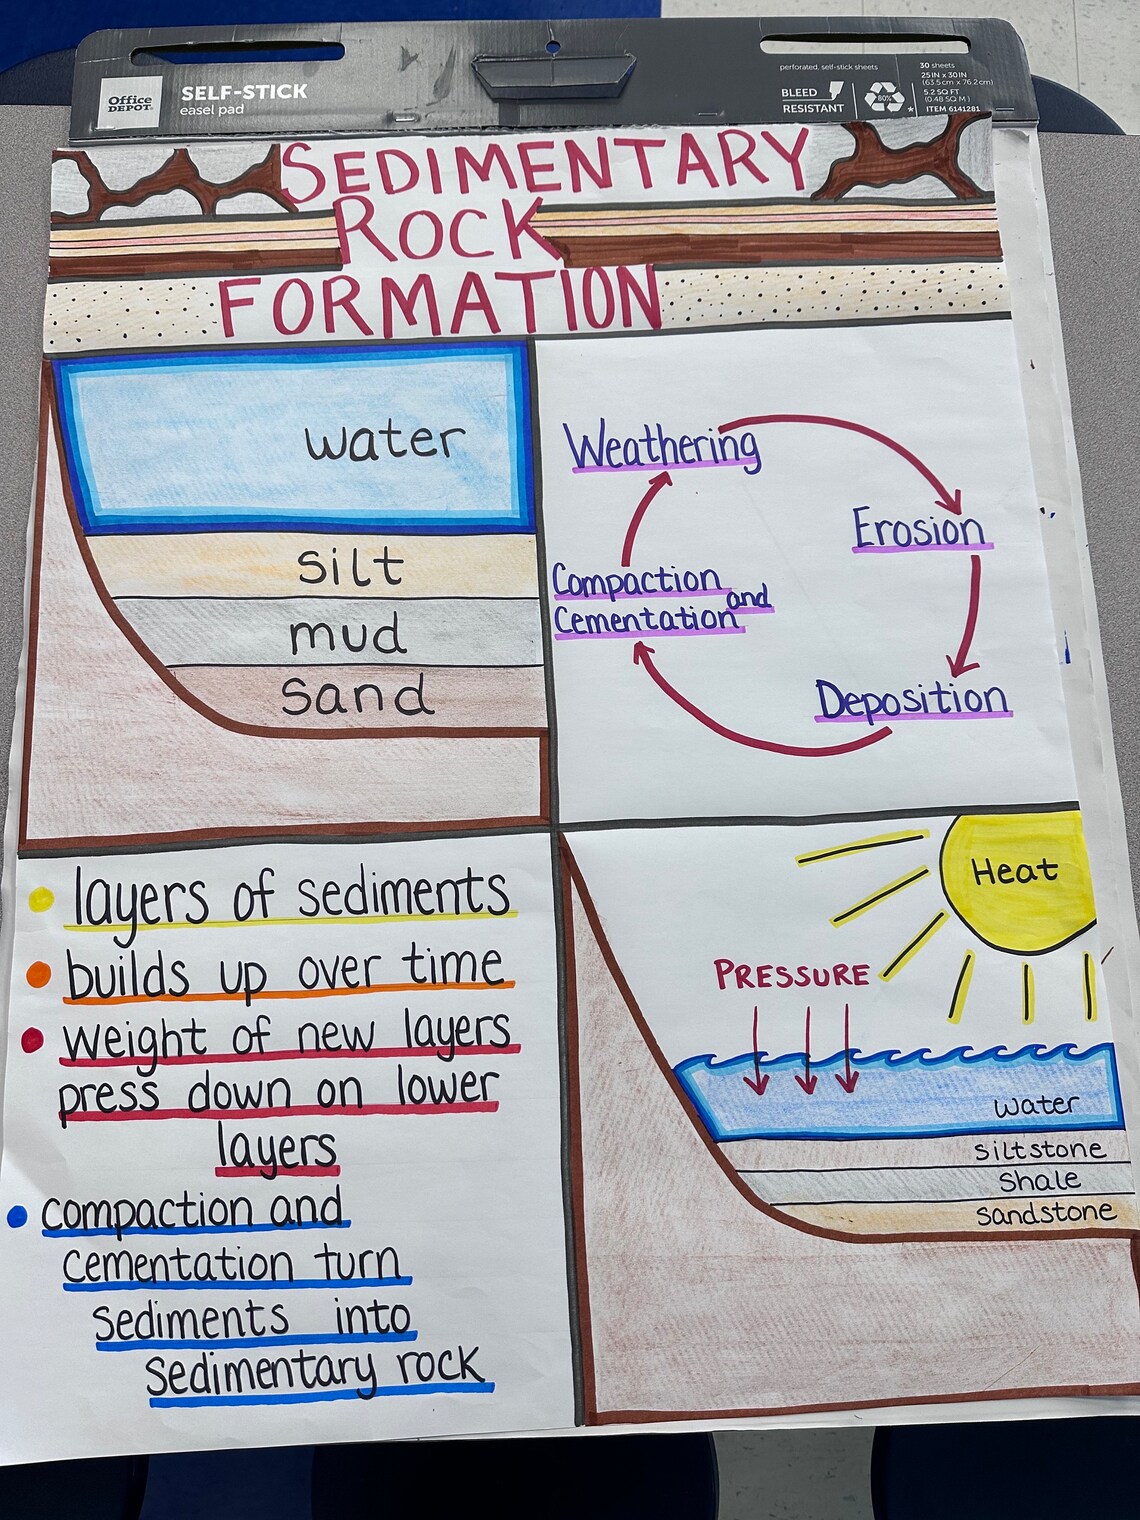 Office
DEPOT
SELF-STICK
easel pad
perforated, self-stick sheets
BLEED
RESISTANT
80%
30 sheets
25 IN x 30 IN
(63.5 cm x 76.2 cm)
5.2 SQ FT
(0.48 SQ M)
ITEM 6141281
SEDIMENTARY
ROCK
FORMATION
water
silt
mud
sand
Weathering
Erosion
Compaction and
Cementation
Deposition
layers of sediments
builds up over time
weight of new layers
press down on lower
layers
compaction and
cementation turn
sediments into
sedimentary rock
Heat
PRESSURE
water
siltstone
shale
sandstone